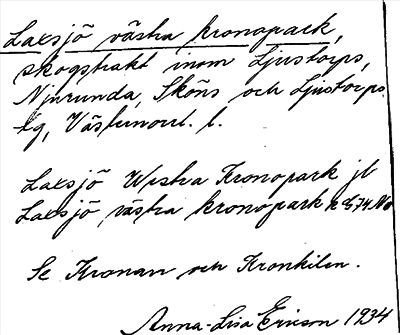 Laxsjö västra kronopark,
skogstrakt inom Ljustorps,
Njurunda, Sköns och Ljustorps
tg, Västernorrl. l.
Laxsjö Westra Kronopark jb
Laxsjö, västra kronopark k E74 No
Se Kronan och Kronkilen.
Anna-Lisa Ericson 1934